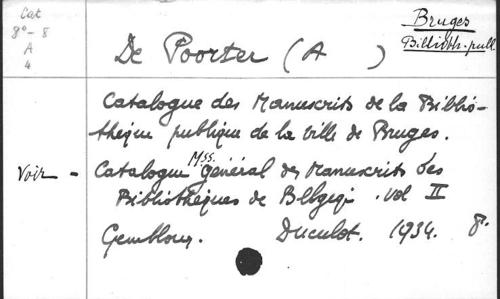 Cat
8°-8
A
4
Bruges
Biblioth. publ.
De Poorter (A )
Catalogue des Manuscrits de la Biblio-
thèque publique de la Ville de Bruges.
Voir - Catalogue Mss. général des Manuscrits des
Bibliothèques de Belgique. Vol II
Gembloux. Duculot. 1934. 8°.